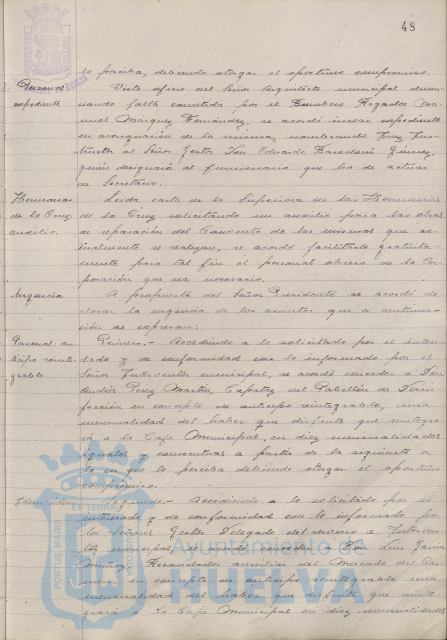 48
lo perciba, debiendo otorgar el oportuno compromiso.
Personal
expediente
Visto oficio del Señor Arquitecto municipal denun-
ciando falta cometida por el Bombero Regador Ma-
nuel Márquez Fernández, se acordó incoar expediente
en averiguación de la misma, nombrando Juez Ins-
tructor al Señor Gestor Don Eduardo
quien designará el funcionario que ha de actuar
de Secretario.
Hermanas
de la Cruz
auxilio.
Leida carta de la Superiora de las Hermanas
de la Cruz solicitando un auxilio para las obras
de reparación del Convento de las mismas que ac-
tualmente se realizan, se acordó facilitarle gratuita-
mente para tal fin el personal obrero de la Cor-
poración que sea necesario.
Urgencia
A propuesta del Señor Presidente se acordó de-
clarar la urgencia de los asuntos que a continua-
ción se expresan:
Personal an-
ticipo reinte-
grable
Primero.- Accediendo a lo solicitado por el intere-
sado y de conformidad con lo informado por el
Señor Interventor municipal, se acordó conceder a Don
Andrés Perez Martin, Capataz del Pabellón de Desin-
fección en concepto de anticipo reintegrable, una
mensualidad del haber que disfruta que reintegra-
rá a la Caja Municipal en diez mensualidades
iguales y consecutivas a partir de la siguiente a
la en que lo perciba debiendo otorgar el oportuno
compromiso.
Idem idem
Segundo.- Accediendo a lo solicitado por el
interesado y de conformidad con lo informado por
los Señores Gestor Delegado del servicio e Interven-
tor municipal, se acordó conceder a Don Luis
Muñoz, Recaudador auxiliar del Mercado del Car-
men en concepto de anticipo reintegrable una
mensualidad del haber que disfruta que reinte-
grará a la Caja Municipal en diez mensualidades
PORTUS MARIS ET TERRAE
Ayuntamiento de
HUELVA